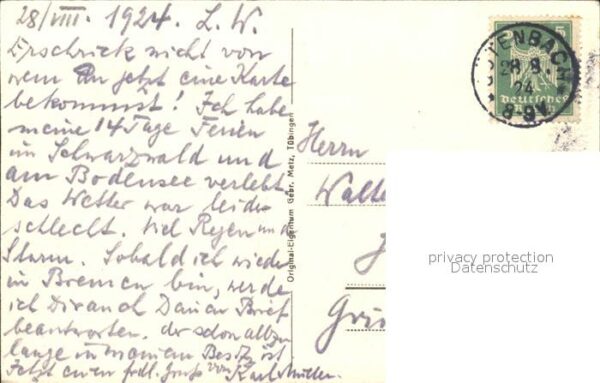 28/VIII. 1924. L. W.
Erschrick nicht von
wem Du jetzt eine Karte
bekommst! Ich habe
meine 14 Tage Ferien
im Schwarzwald und
am Bodensee verlebt.
Das Wetter war leider
schlecht. Viel Regen und
Sturm. Sobald ich wieder
in Bremen bin, werde
ich Dir auch Deinen Brief
beantworten, der schon allzu
lange in meinem Besitz ist.
Jetzt einen frdl. Gruß von Karl
Original-Eigentum Gebr. Metz, Tübingen
TENBACH
8.
24
8-9V
Deutsches
Reich
Herrn
Walte
privacy protection
Datenschutz